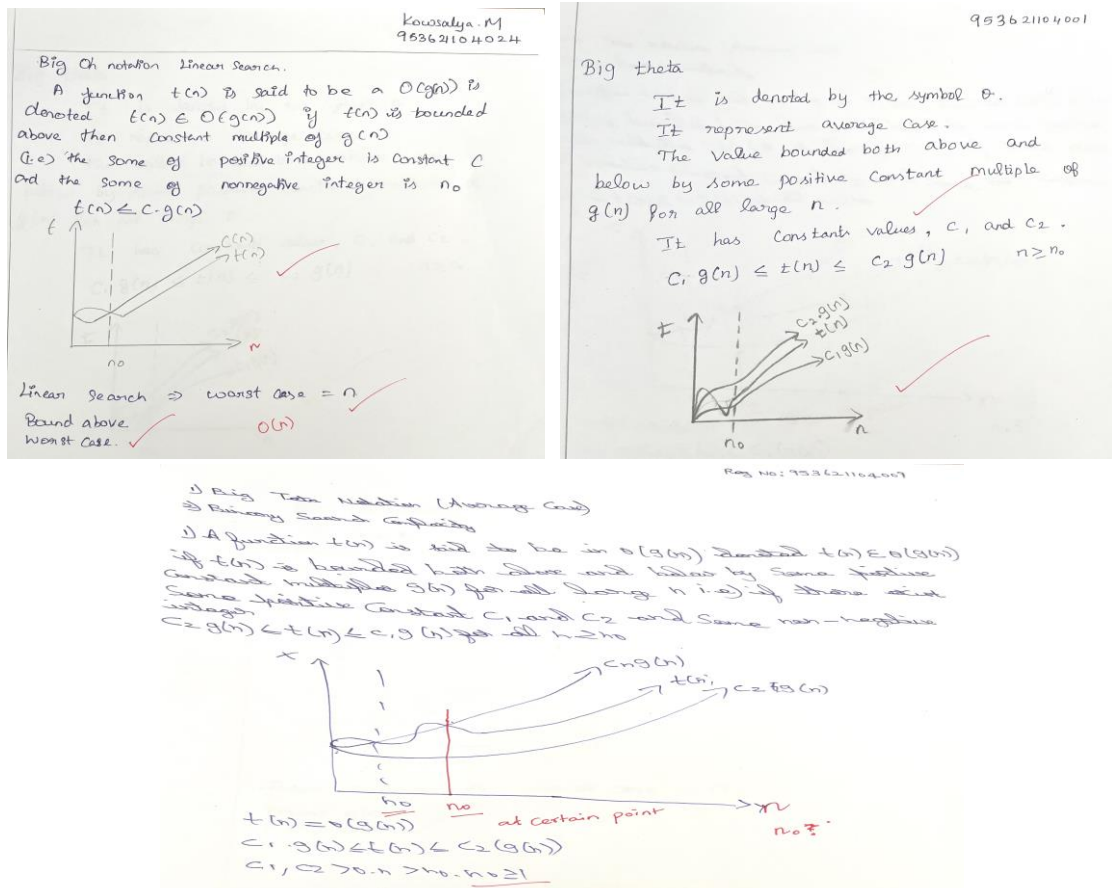 Kowsalya.M
953621104024
Big Oh notation Linear Search.
A function t(n) is said to be a O(g(n)) is
denoted t(n) ∈ O(g(n)) if t(n) is bounded
above then constant multiple of g(n)
(i.e) the some of positive integer is constant C
and the some of nonnegative integer is n₀
t(n) ≤ C·g(n)
t
C(n)
t(n)
n₀
n
Linear Search ⇒ worst case = n
Bound above
O(n)
Worst Case.
953621104001
Big theta
It is denoted by the symbol θ.
It represent average case.
The Value bounded both above and
below by some positive constant multiple of
g(n) for all large n.
It has constants values, C₁ and C₂.
C₁ g(n) ≤ t(n) ≤ C₂ g(n) n ≥ n₀
t
C₂.g(n)
t(n)
C₁g(n)
n₀
n
Reg No: 953621104007
1) Big Teta Notation (Average Case)
2) Binary Search Complexity
1) A function t(n) is said to be in θ(g(n)) denoted t(n) ∈ θ(g(n))
if t(n) is bounded both above and below by some positive
constant multiples g(n) for all large n i.e) if there exist
some positive Constant C₁ and C₂ and some non-negative
integer
C₂ g(n) ≤ t(n) ≤ C₁ g(n) for all n ≥ n₀
g(n)
t(n)
C₂ g(n)
n₀
n₀
at certain point
n
n₀?
t(n) = θ(g(n))
C₁ .g(n) ≤ t(n) ≤ C₂(g(n))
C₁, C₂ >0. n > n₀. n₀ ≥ 1